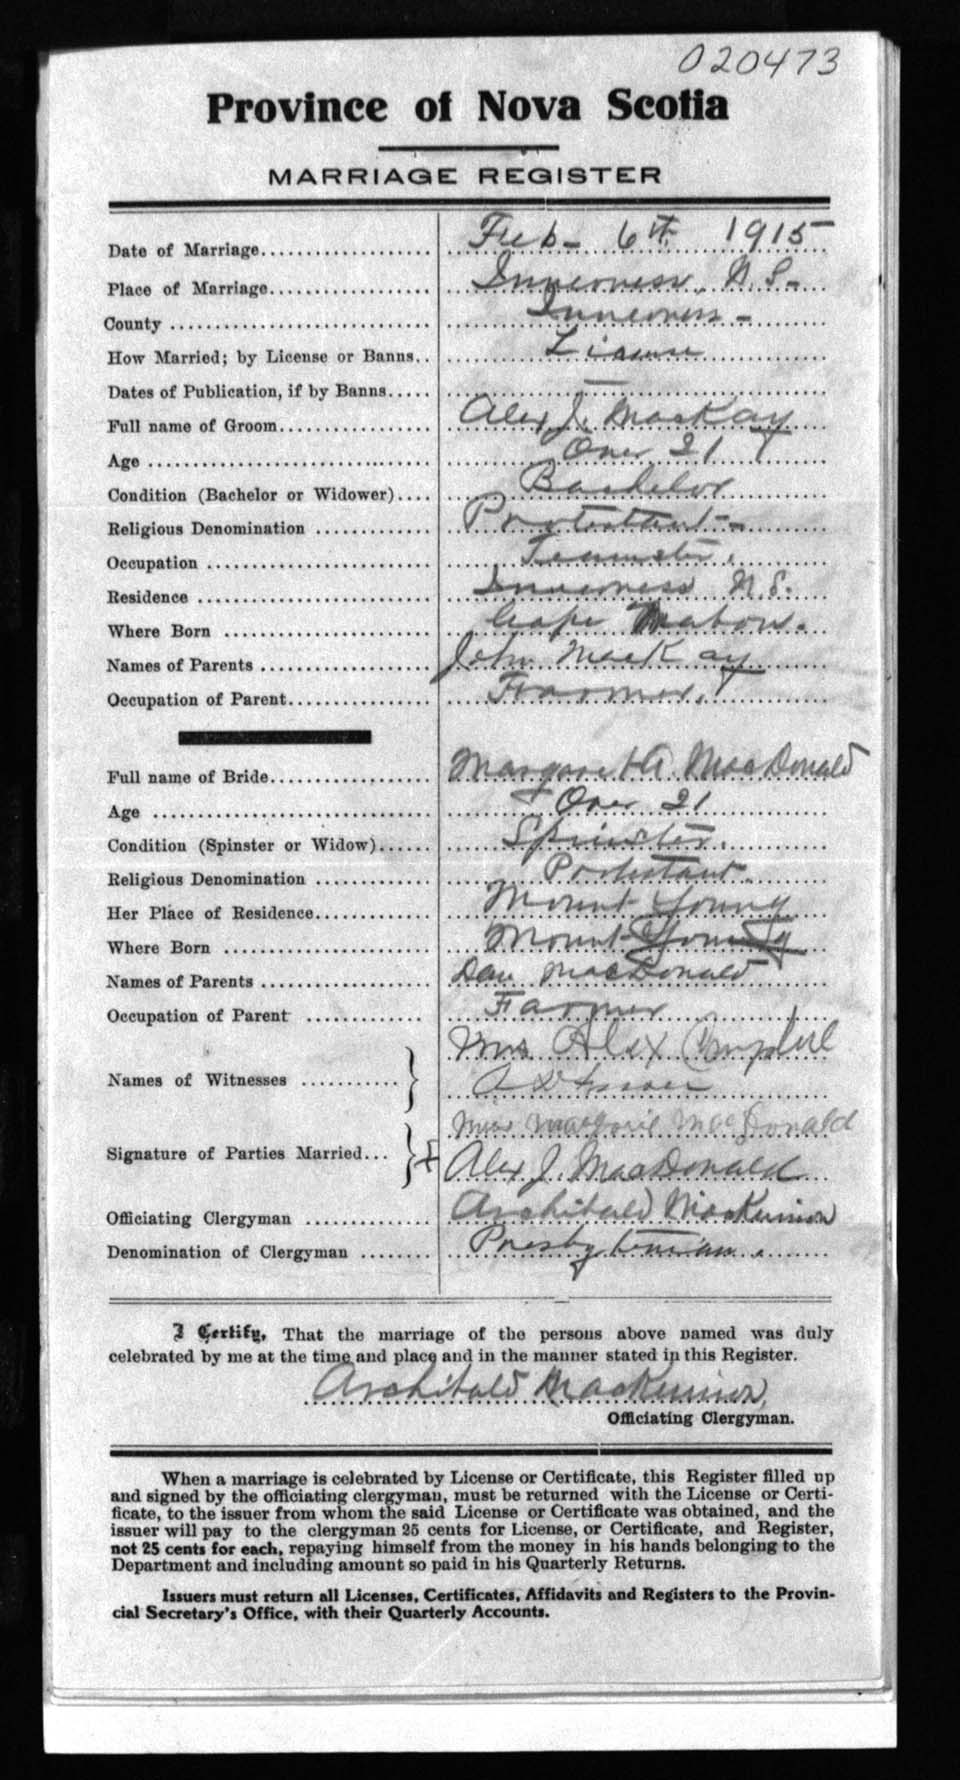 020473
Province of Nova Scotia
MARRIAGE REGISTER
Date of Marriage Feb- 6th 1915
Place of Marriage Inverness N.S-
County Inverness-
How Married; by License or Banns License
Dates of Publication, if by Banns —
Full name of Groom Alex J. MacKay
Age Over 21
Condition (Bachelor or Widower) Bachelor
Religious Denomination Protestant-
Occupation Teamster.
Residence Inverness N.S.
Where Born Cape Mabou.
Names of Parents John MacKay
Occupation of Parent Farmer.
Full name of Bride Margaret A MacDonald
Age Over 21
Condition (Spinster or Widow) Spinster.
Religious Denomination Protestant.
Her Place of Residence Mount Young
Where Born Mount Young
Names of Parents Dan MacDonald
Occupation of Parent Farmer
Names of Witnesses Mrs Alex Campbell
Signature of Parties Married Miss MacDonald
Alex J. MacDonald
Officiating Clergyman Archibald MacKinnon
Denomination of Clergyman Presbyterian.
I Certify, That the marriage of the persons above named was duly
celebrated by me at the time and place and in the manner stated in this Register.
Archibald MacKinnon,
Officiating Clergyman.
When a marriage is celebrated by License or Certificate, this Register filled up
and signed by the officiating clergyman, must be returned with the License or Certi-
ficate, to the issuer from whom the said License or Certificate was obtained, and the
issuer will pay to the clergyman 25 cents for License, or Certificate, and Register,
not 25 cents for each, repaying himself from the money in his hands belonging to the
Department and including amount so paid in his Quarterly Returns.
Issuers must return all Licenses, Certificates, Affidavits and Registers to the Provin-
cial Secretary's Office, with their Quarterly Accounts.